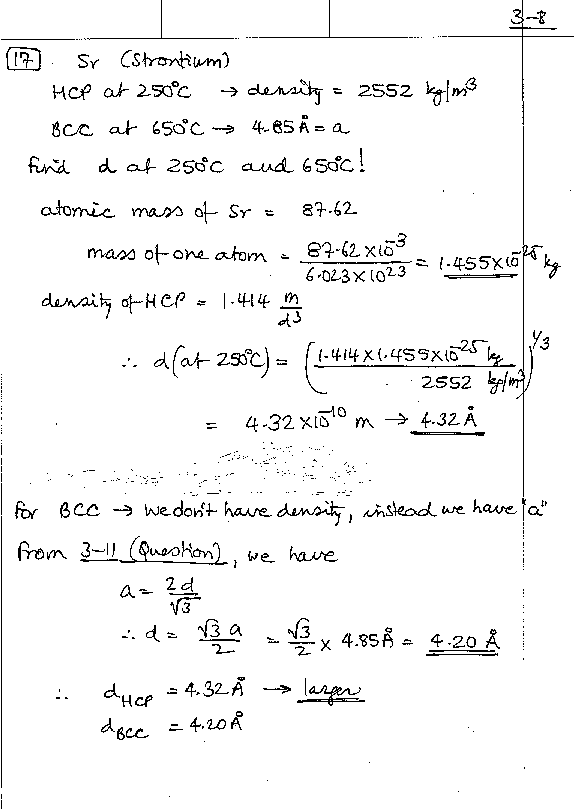 3-8
17. Sr (Strontium)
HCP at 250°C → density = 2552 kg/m³
BCC at 650°C → 4.85 Å = a
find d at 250°C and 650°C!
atomic mass of Sr = 87.62
mass of one atom = 87.62 × 10⁻³ / 6.023 × 10²³ = 1.455 × 10⁻²⁵ kg
density of HCP = 1.414 m/d³
∴ d (at 250°C) = (1.414 × 1.455 × 10⁻²⁵ kg / 2552 kg/m³)^1/3
= 4.32 × 10⁻¹⁰ m → 4.32 Å
for BCC → we don't have density, instead we have "a"
from 3-11 (Question), we have
a = 2d/√3
∴ d = √3 a/2 = √3/2 × 4.85 Å = 4.20 Å
∴ d_HCP = 4.32 Å → larger
d_BCC = 4.20 Å